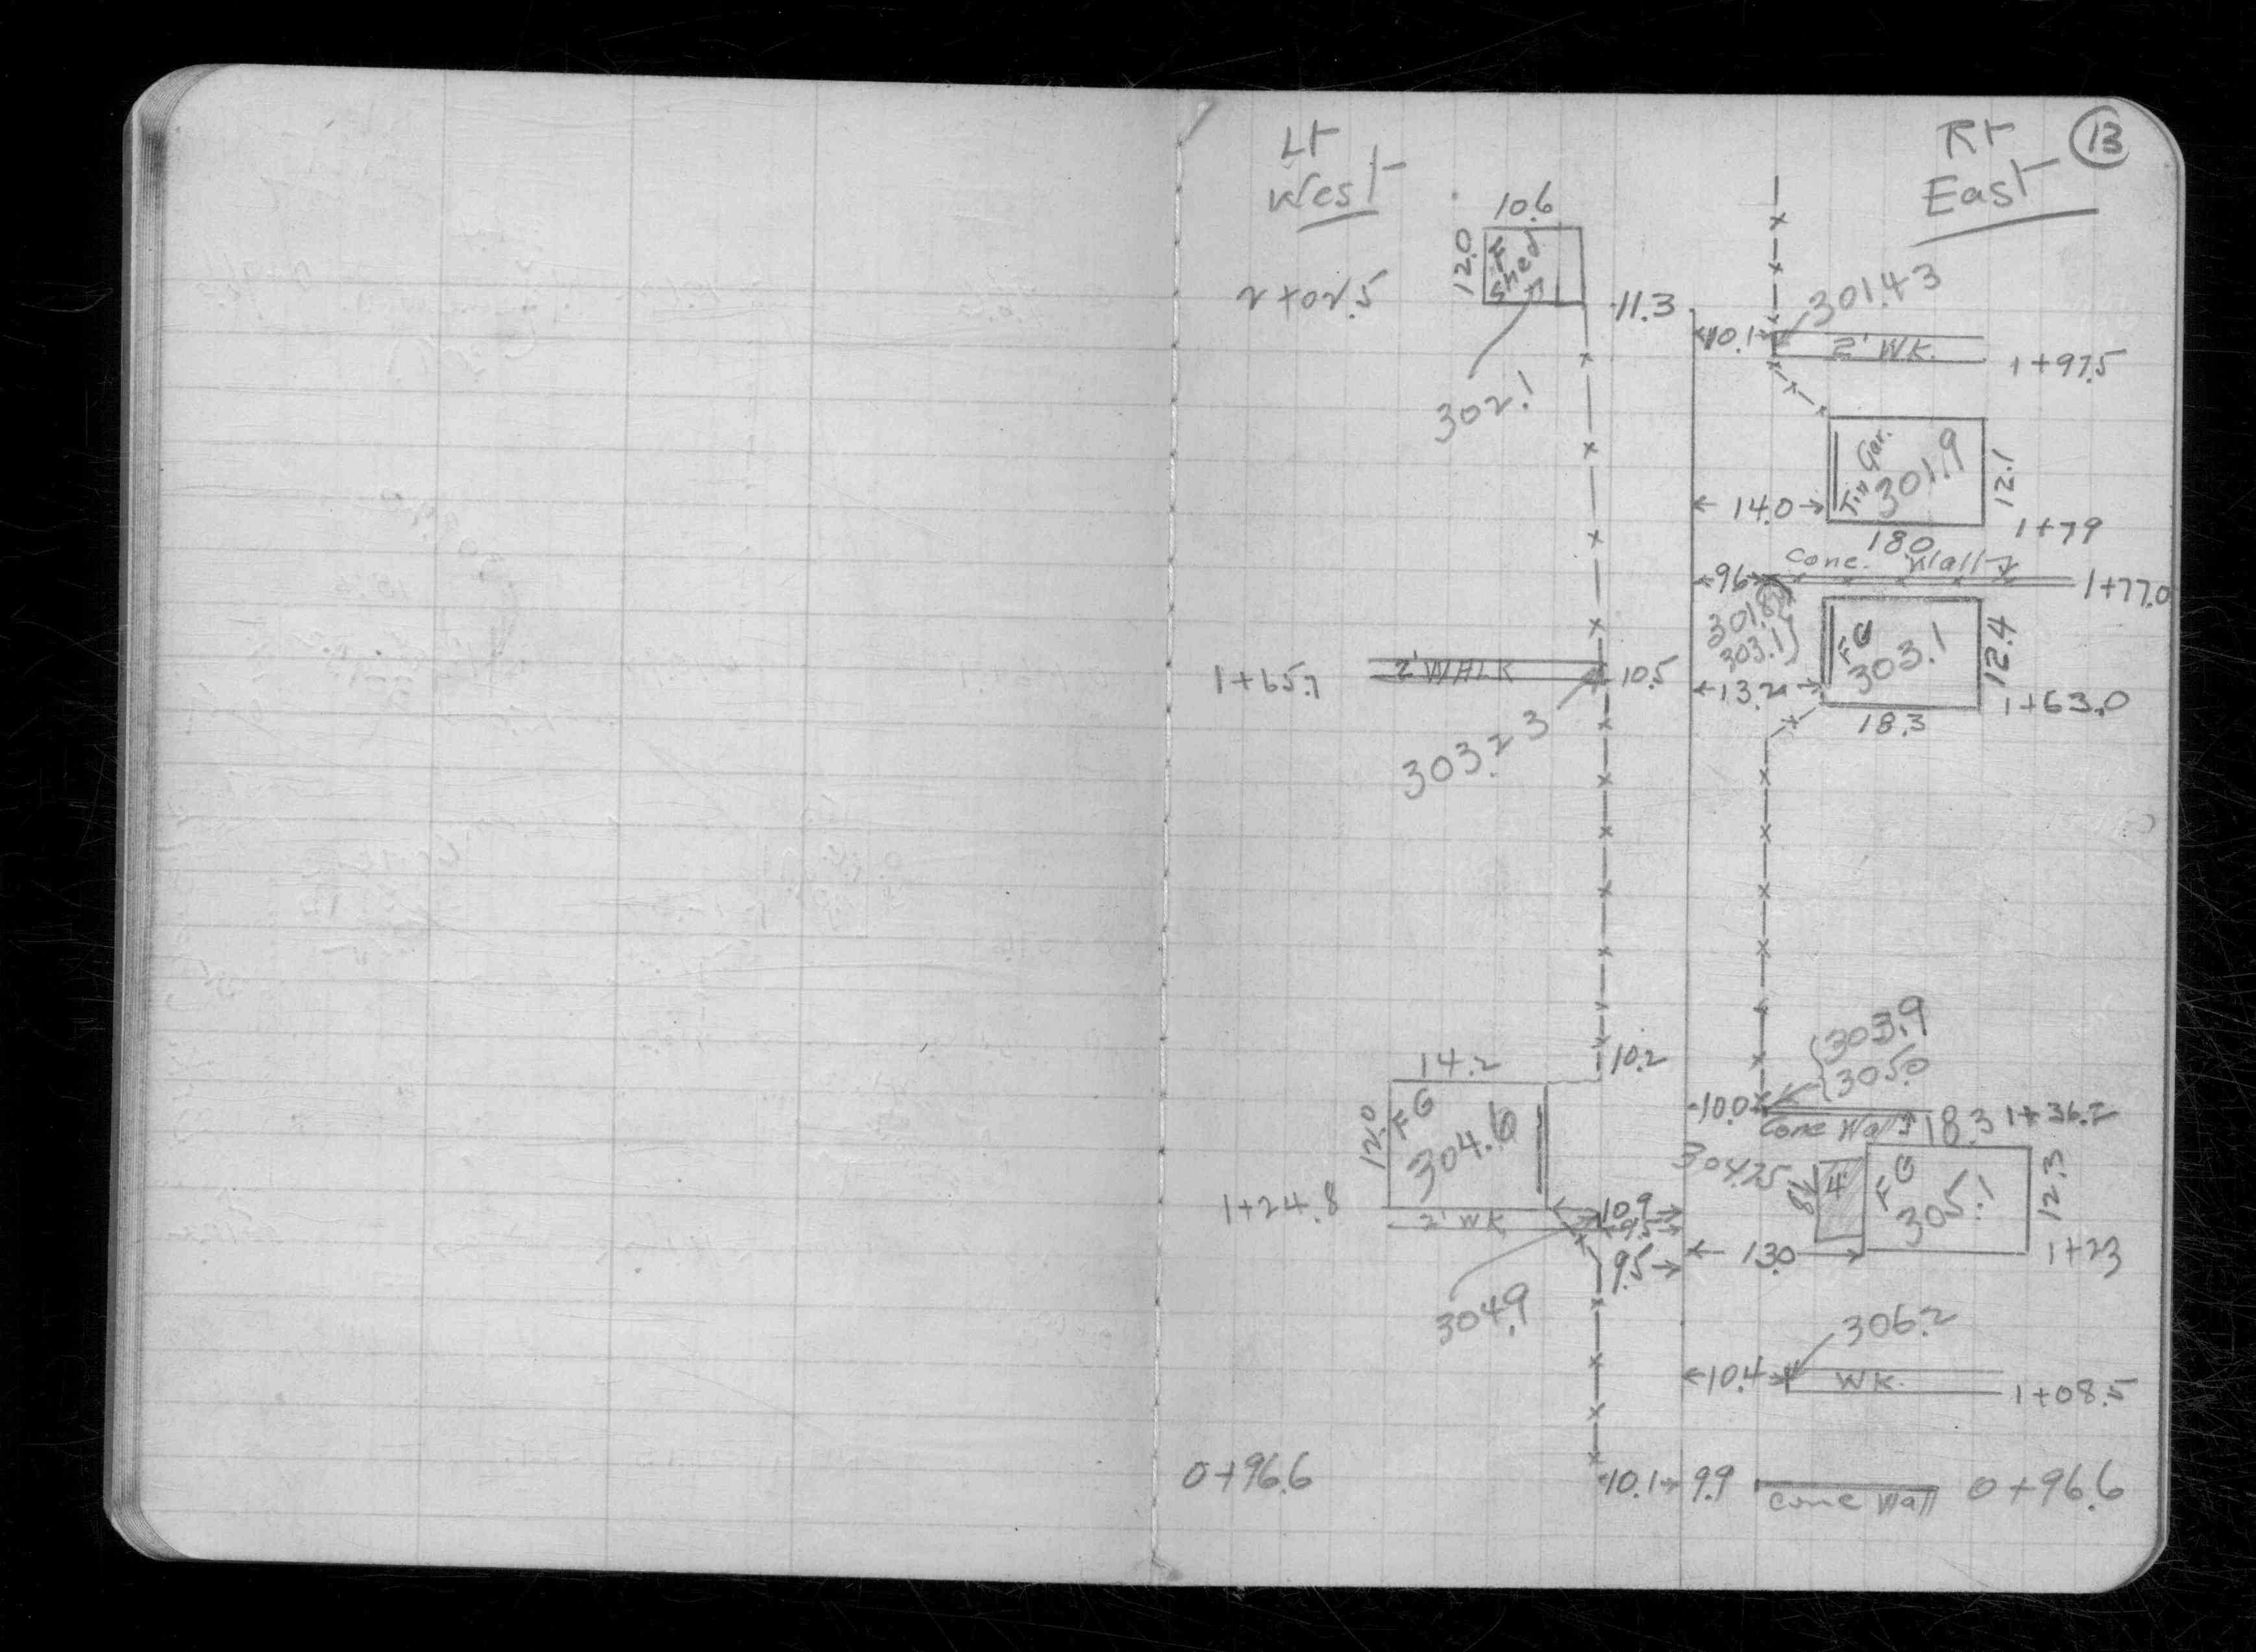 Lt Rt 13
West East
10.6
12.0
F
Shed
2+02.5
11.3
301.43
10.1
2' WK.
1+97.5
302.1
Tin Gar.
301.9
12.1
14.0
18.0
1+79
Conc. Wall
9.6
1+77.0
303.1
FG
303.1
12.4
1+65.7
2' WALK
10.5
1+63.0
18.3
303.23
303.9
305.0
10.2
14.2
12.0
FG
304.6
10.0
Conc Wall
18.3
1+36.2
304.75
4'
FG
305.1
12.3
1+24.8
2' WK
10.9
9.5
13.0
1+23
9.5
304.9
306.2
10.4
WK.
1+08.5
0+96.6
10.1
9.9
Conc Wall
0+96.6